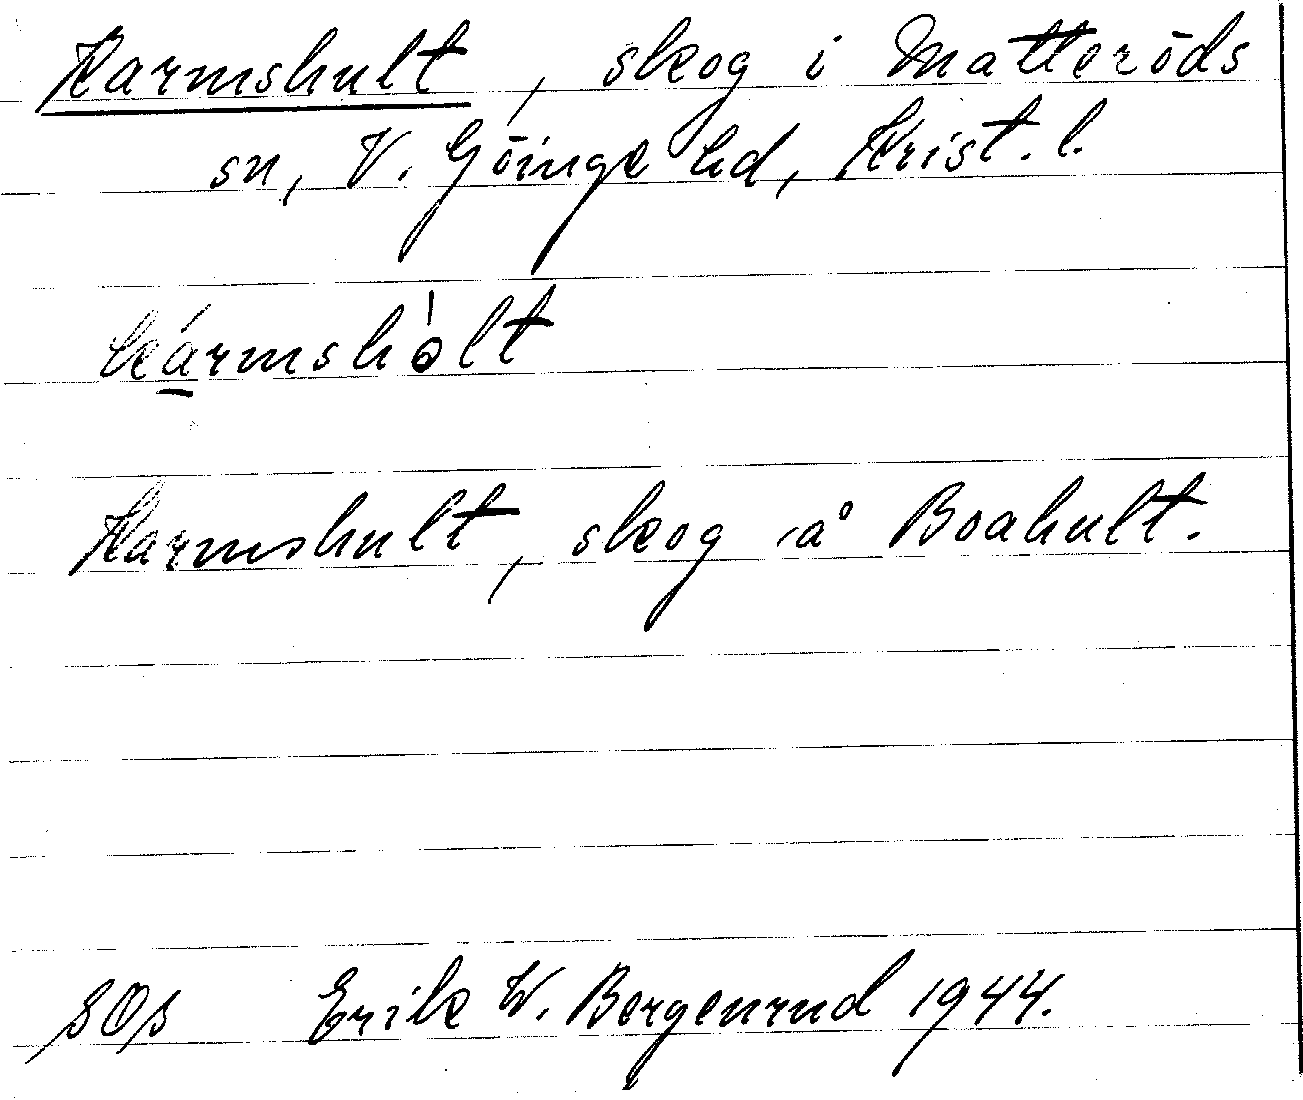 Karmshult, skog i Matteröds
sn, V. Göinge hd, Krist. l.
ká̱rmshòlt
Karmshult, skog å Boahult.
SOS Erik W. Bergenrud 1944.